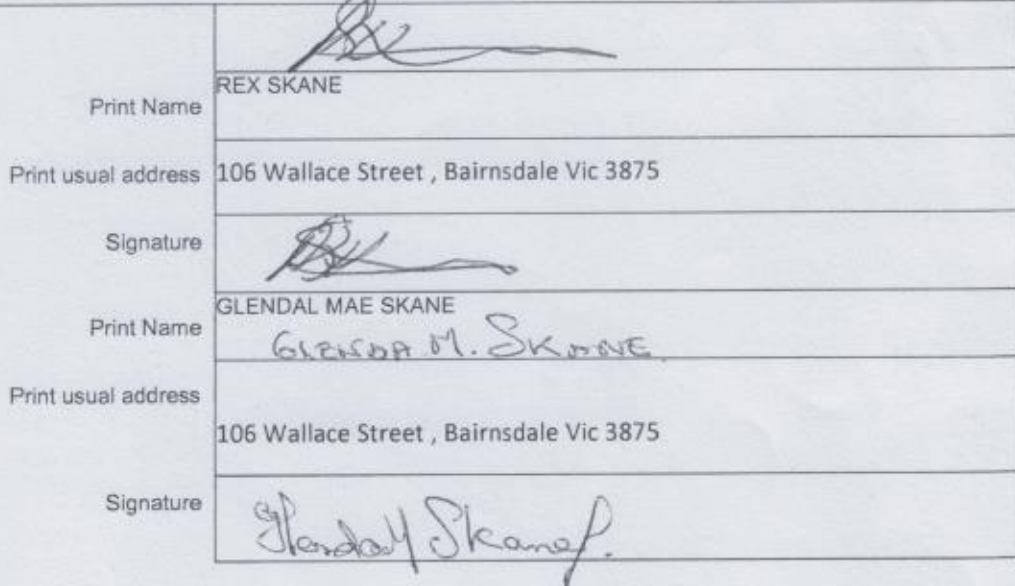 REX SKANE
Print Name
Print usual address 106 Wallace Street , Bairnsdale Vic 3875
Signature
GLENDAL MAE SKANE
Print Name
GLENDA M. SKANE
Print usual address
106 Wallace Street , Bairnsdale Vic 3875
Signature
Glenda M Skane